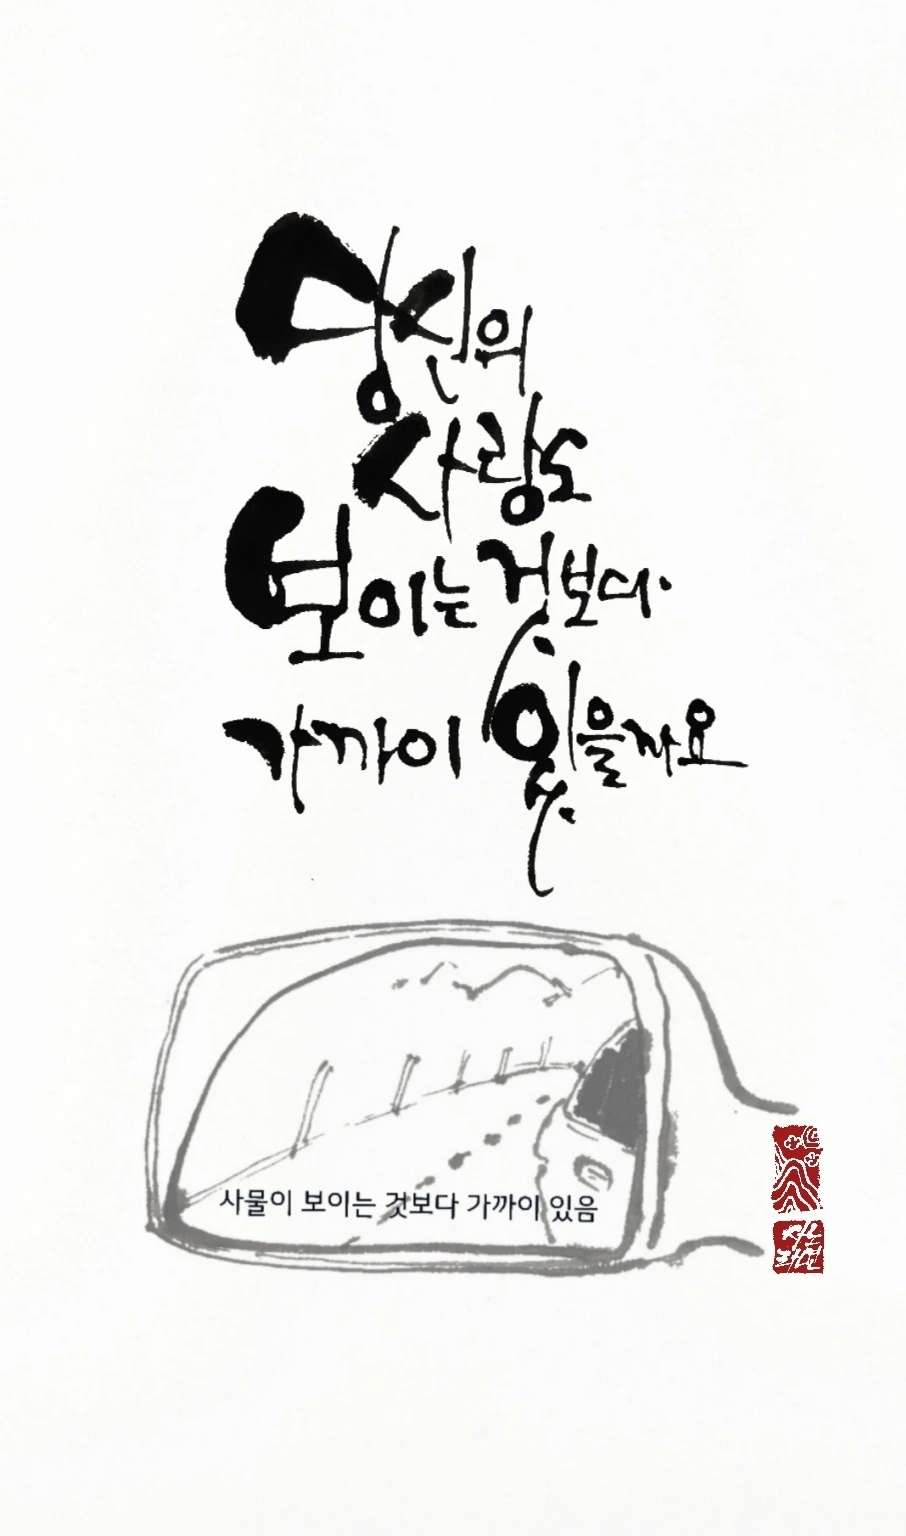 당신의
사랑도
보이는 것보다
가까이 있을까요
사물이 보이는 것보다 가까이 있음